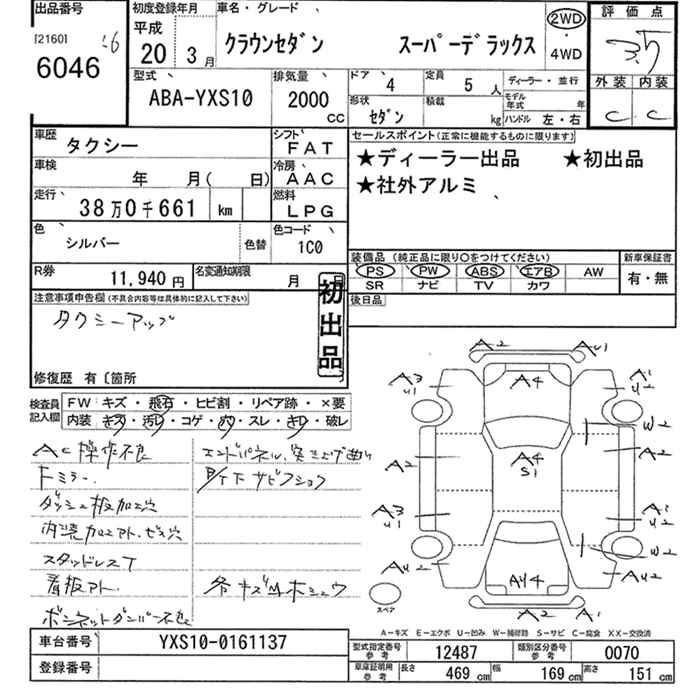 出品番号 初度登録年月 車名・グレード 2WD 評価点
[2160] 平成
6046 20年 3月 クラウンセダン スーパーデラックス 4WD 3.5
型式 排気量 ドア 4 定員 5人 ディーラー・並行 外装 内装
ABA-YXS10 2000cc 形状 セダン 積載 kg モデル年式 年 ハンドル 左・右 C C
車歴 タクシー シフト FAT セールスポイント(正常に機能するものに限ります)
車検 年 月( 日) 冷房 AAC ★ディーラー出品 ★初出品
走行 38万0千661 km 燃料 LPG ★社外アルミ
色 シルバー 色替 色コード 1C0
装備品 (純正品に限り○をつけてください) 新車保証書
R券 11,940円 名変通知期限 月 PS PW ABS エアB AW 有・無
SR ナビ TV カワ
注意事項申告欄(不具合内容等は具体的に記入して下さい) 初出品 後日品
タクシーアップ
修復歴 有〔箇所
検査員記入欄 FW キズ・飛石・ヒビ割・リペア跡・×要
内装 キズ・汚レ・コゲ・穴・スレ・キレ・破レ
AC操作不良 エンドパネル、突き上げ曲り
ドミラー 所々下サビフショク
ダッシュ板加工穴
内張加工アト・ビス穴
スタッドレスT
看板アト 各キズ凹ホシュウ
ボンネットダンパー不良
A2 AU1
A3 U1 A4 A1 U2
W2
A2 A4 S1 A2
A3 U1 A1 U2
W2
AU2 AU4 AU2
A2 A1
スペア
A-キズ E-エクボ U-凹み W-補修跡 S-サビ C-腐食 XX-交換済
車台番号 YXS10-0161137 型式指定番号 参考 12487 類別区分番号 参考 0070
登録番号 車庫証明用 参考 長さ 469 cm 幅 169 cm 高さ 151 cm